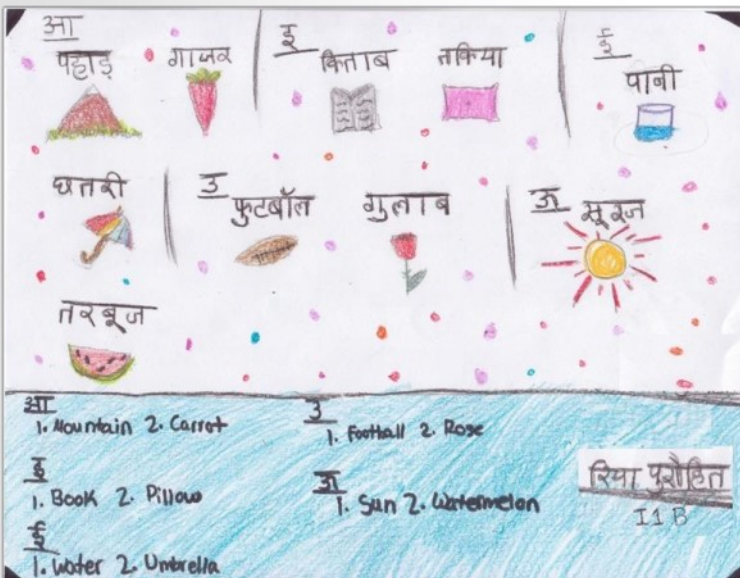 आ
पहाड़ गाजर
इ
किताब तकिया
ई
पानी
छतरी
उ
फुटबॉल गुलाब
ऊ
सूरज
तरबूज
आ
1. Mountain 2. Carrot
इ
1. Book 2. Pillow
ई
1. Water 2. Umbrella
उ
1. Football 2. Rose
ऊ
1. Sun 2. Watermelon
रिया पुरोहित
I1 B